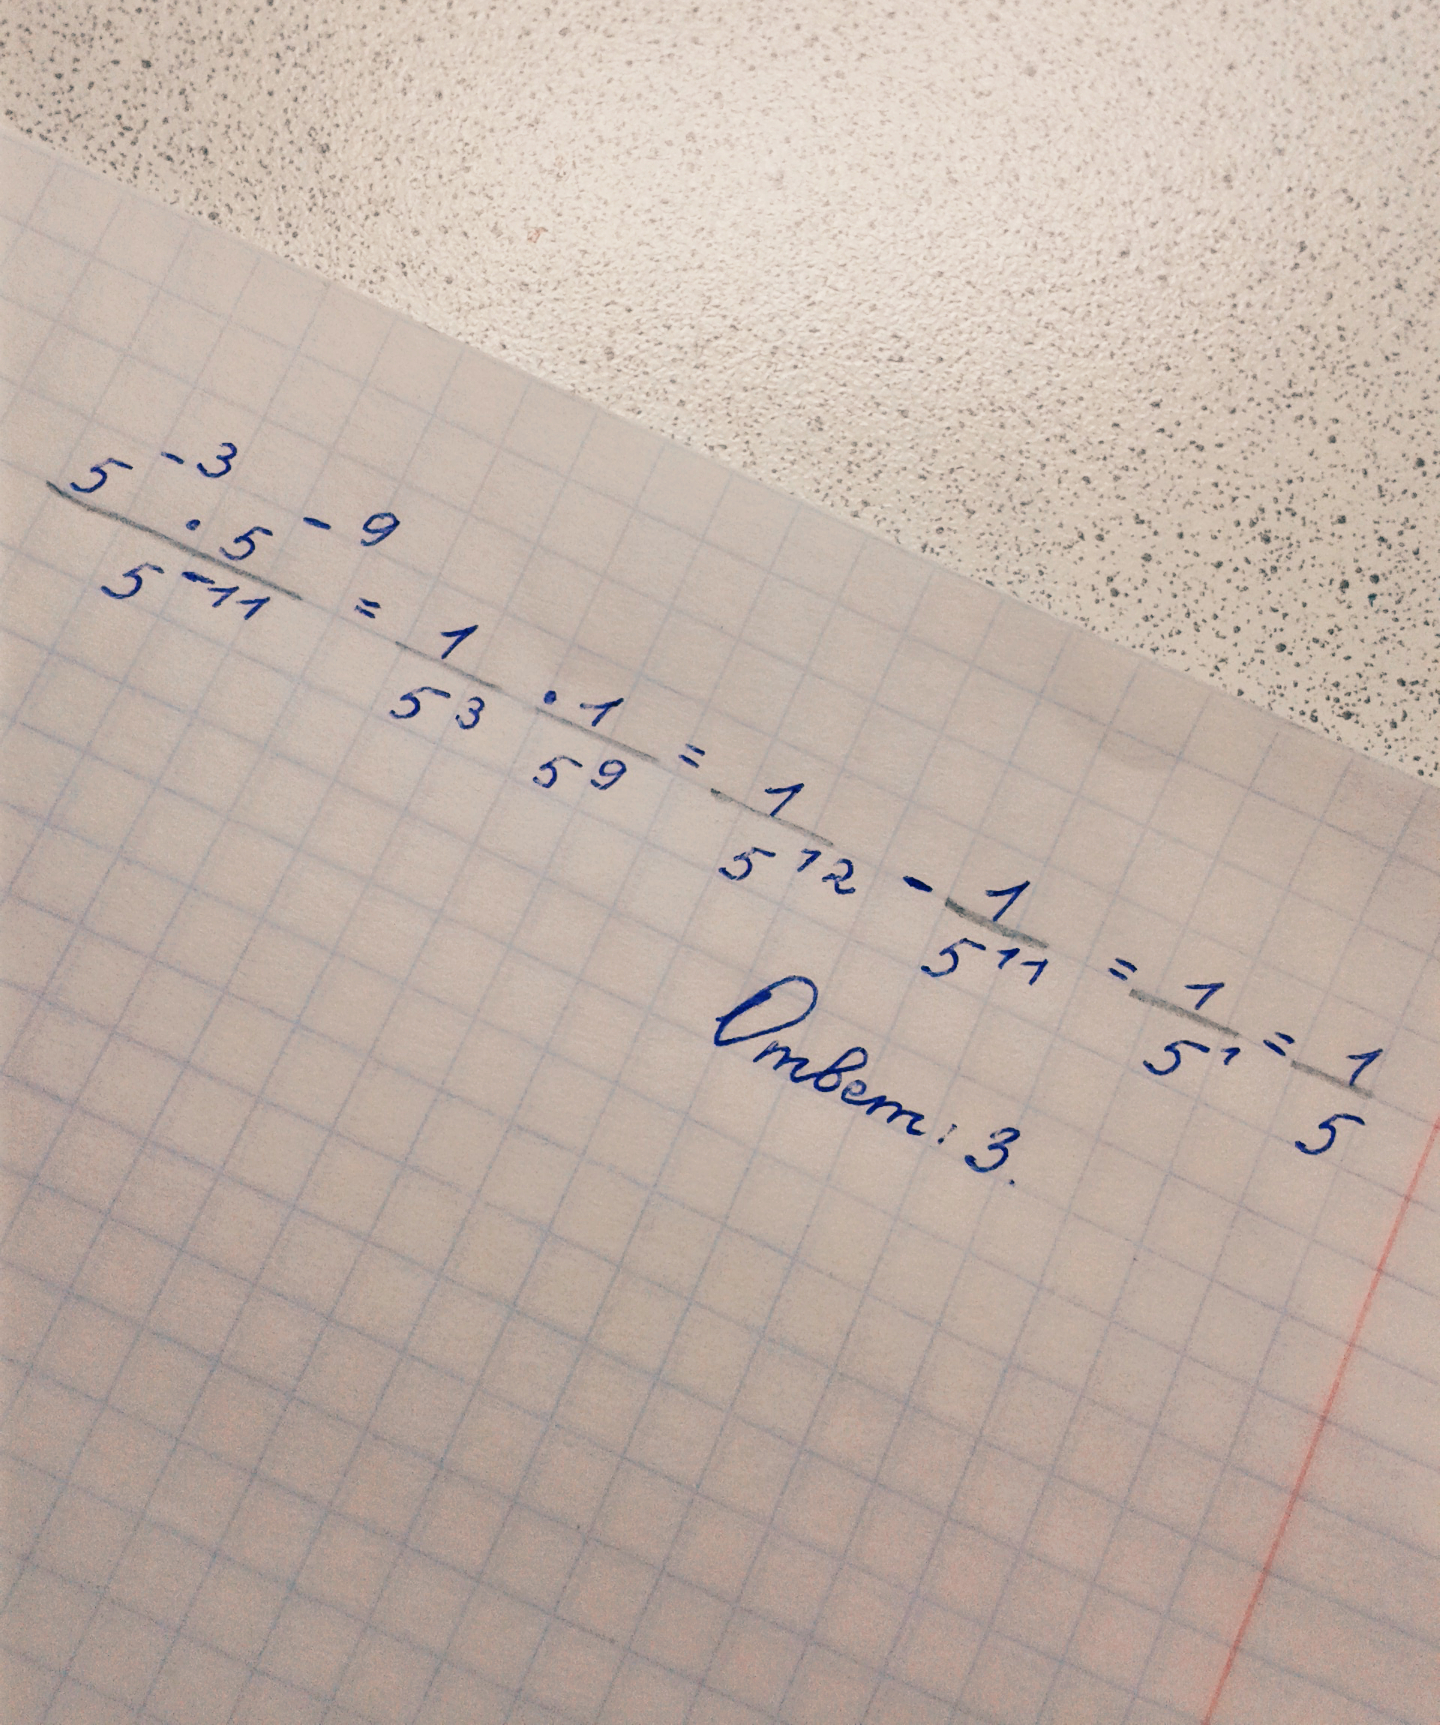 5^-3 · 5^-9 / 5^-11 = 1/5^3 · 1/5^9 = 1/5^12 - 1/5^11 = 1/5^1 = 1/5
Ответ: 3.